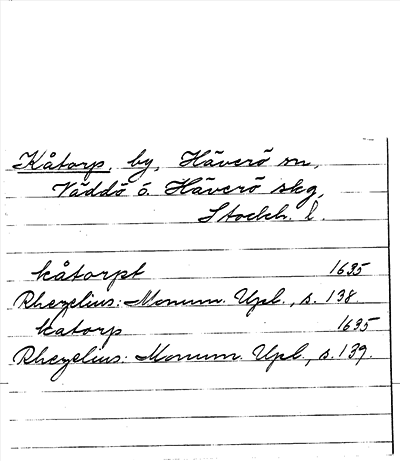 Kåtorp, by, Häverö sn,
Väddö o. Häverö skg,
Stockh. l.
kåtorpt 1635
Rhezelius: Monum. Upl., s. 138
katorp 1635
Rhezelius: Monum. Upl., s. 139.